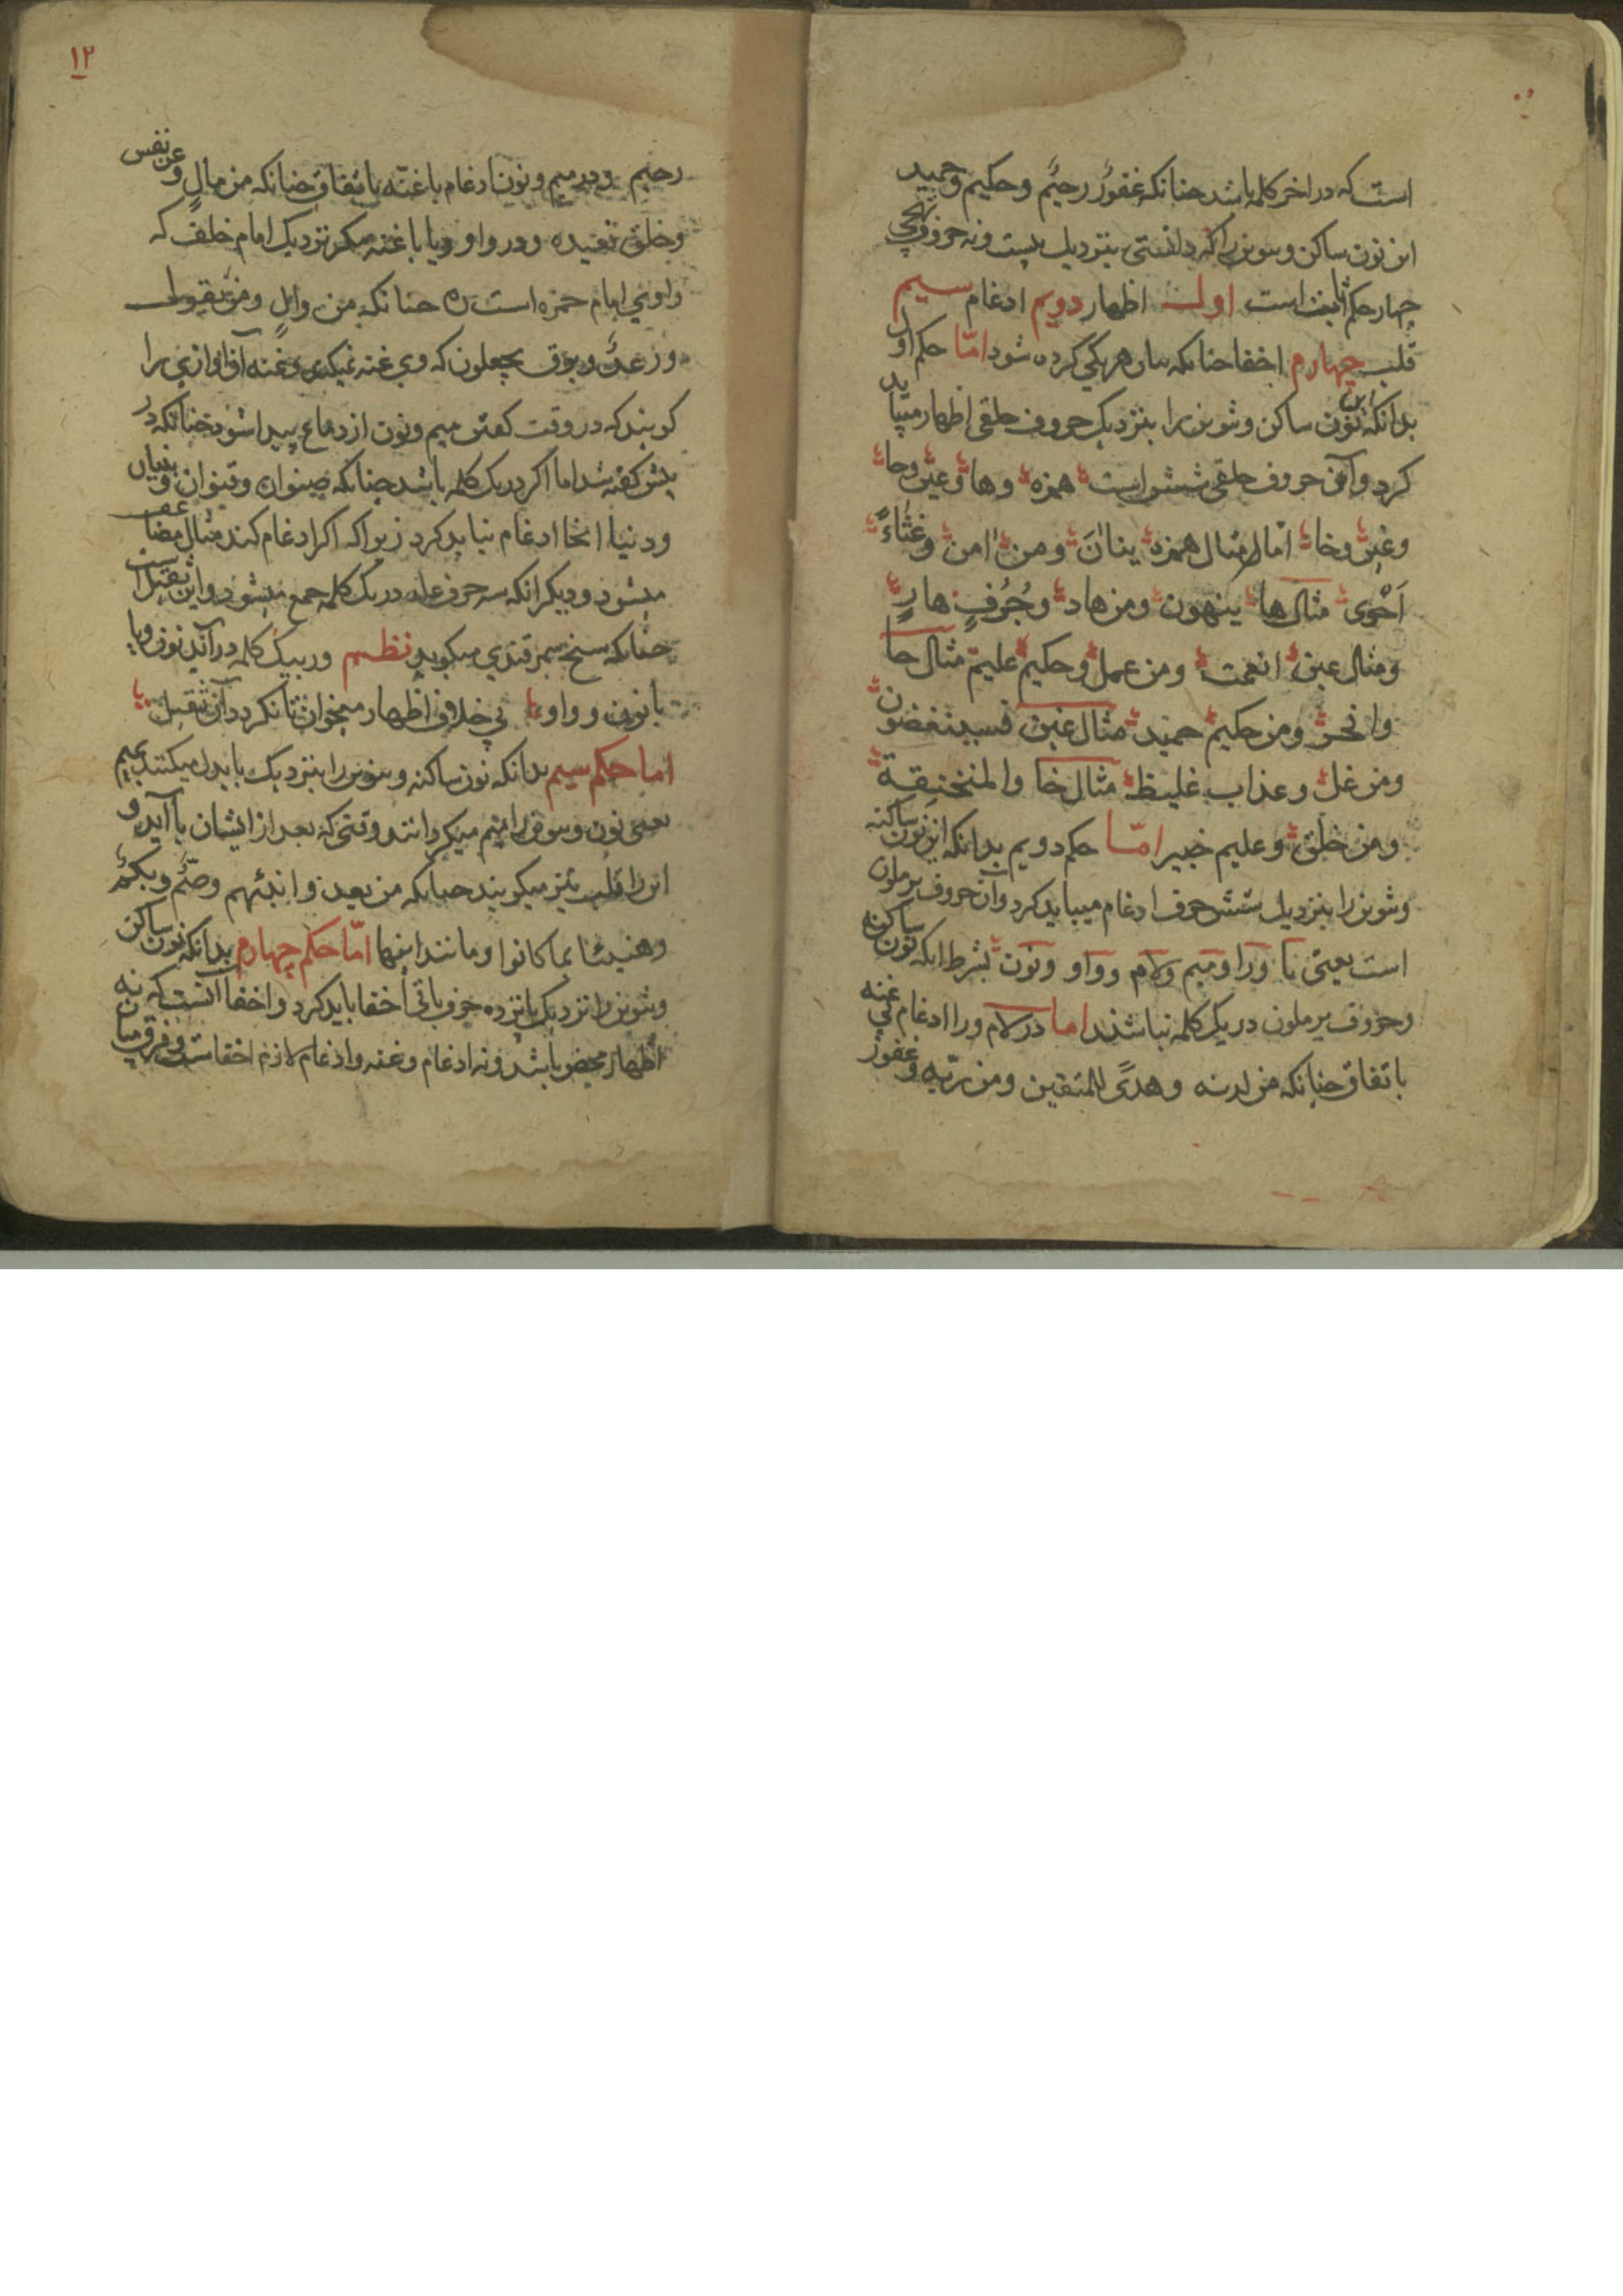 است که در اخر کلمه باشد چنانکه غفورٌ رحیمٌ وحکیم وحمید
این نون ساکن و تنوین را که دانستی بنزدیک بیست ونه حروف تهجی
چهار حکم ثابت است اول اظهار دویم ادغام سیم
قلب چهارم اخفا چنانکه بیان هر یکی کرده شود امّا حکم اول
بدانکه این نون ساکن وتنوین را بنزدیک حروف حلقی اظهار میباید
کرد وآن حروف حلقی شش است همزه وها وعین وحا
وغین وخا امّا مثال همزه یناٰنَ ومن اٰمن وغثاءً
اَحْوٰی مثال ها ینهون ومن هاد وجُرُفٍ هارٍ
ومثال عین انعمت ومن عمل وحکیم علیم مثال حا
وانحر ومن حکیم حمید مثال غین فسینغضون
ومن غل وعذاب غلیظ مثال خا والمنخنِقة
ومن خلق وعلیم خبیر امّا حکم دویم بدانکه این نون ساکنه
وتنوین را بنزدیک شش حرف ادغام میباید کرد وآن حروف یرملون
است یعنی یا ورا ومیم ولام وواو ونون بشرط انکه نون ساکنه
وحروف یرملون در یک کلمه نباشند اما در لام ورا ادغام بی غنه
باتفاق چنانکه من لدنه وهدًی للمتقین ومن ربّه وغفورٌ
۱۲
رحیم ودر میم ونون ادغام باغنّه باتفاق چنانکه من مالٍ وعن نفس
وخلق نعیده ودر واو ویا باغنه مکر نزدیک امام خلف که
راوی امام حمزه است ره چنانکه من والٍ ومن یقول
ورعدٌ وبرق یجعلون که وی غنه نمیکند وغنه آن آوازی را
کویند که در وقت کفتن میم ونون از دماغ پیدا شود چنانکه در
پیش کفته شد اما اکر در یک کلمه باشد چنانکه صنوان وقنوان وبنیان
ودنیا انجا ادغام نباید کرد زیرا که اکر ادغام کند مثال مضاعف
میشود ودیکر انکه سه حرف عله در یک کلمه جمع میشود واین ثقیل است
چنانکه شیخ سمرقندی میکوید نظم وربیک کلمه درآید نون ویا
یا نون وواو بی خلاف اظهار میخوان تا نکردد آن ثقیل
اما حکم سیم بدانکه نون ساکنه وتنوین را بنزدیک با بدل میکنند بمیم
یعنی نون وتنوین را میم میکردانند وقتی که بعد از ایشان با آید و
این را قلب نیز میکویند چنانکه من بعد وانبئهم وصُمٌّ وبکمٌ
وهنیئا بما کانوا ومانند اینها امّا حکم چهارم بدانکه نون ساکن
وتنوین را نزدیک پانزده حرف باقی اخفا باید کرد واخفا آنست که نه
اظهار محض باشد ونه ادغام وغنه وادغام لازم اخفاست وفرق میان